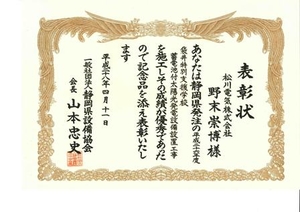 表彰状
松川電気株式会社
野末崇博様
あなたは静岡県発注の平成二十六年度
袋井特別支援学校
蓄電池付太陽光発電設備設置工事
を施工しその成績が優秀であった
ので記念品を添え表彰いたし
ます
平成二十八年四月十一日
一般社団法人静岡県設備協会
会長 山本忠史